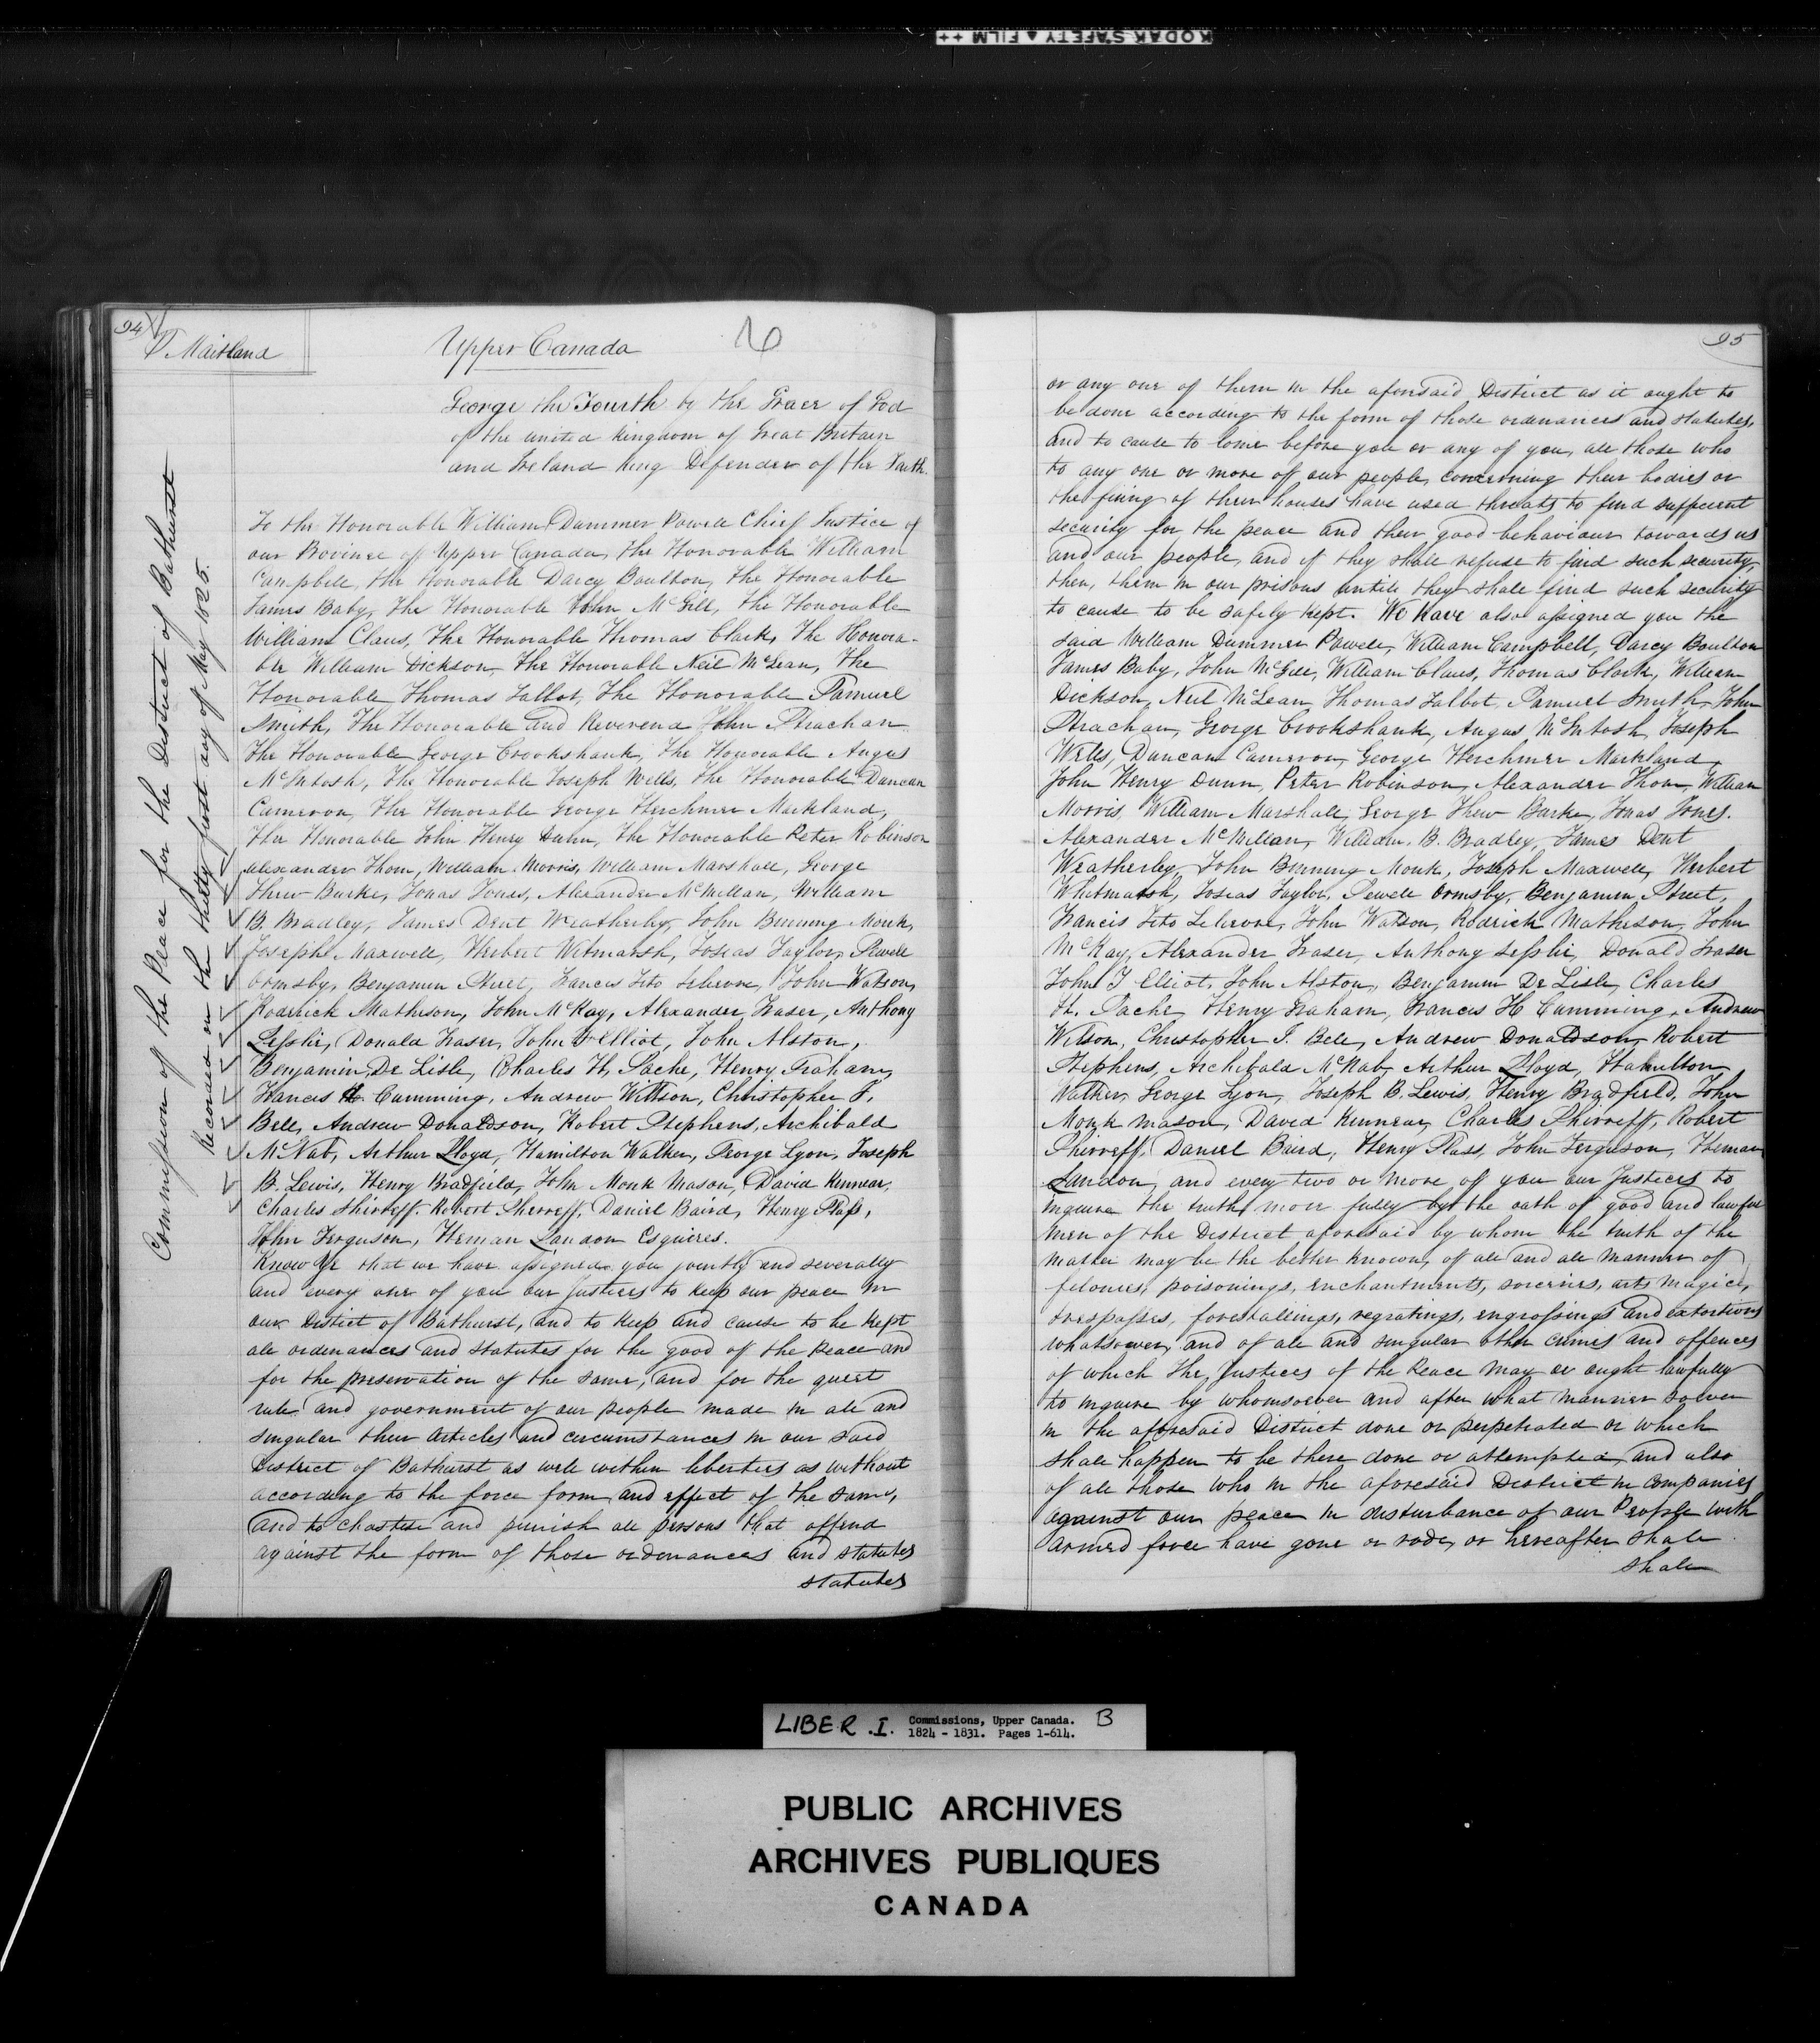 KODAK SAFETY FILM ++
94
P Maitland
Upper Canada
George the Fourth by the Grace of God
of the united Kingdom of Great Britain
and Ireland King Defender of the Faith.
Commission of the Peace for the District of Bathurst
Recorded on the thirty first day of May 1825.
To the Honorable William Dummer Powell Chief Justice of
our Province of Upper Canada, the Honorable William
Campbell, the Honorable Darcy Boulton, the Honorable
James Baby, the Honorable John McGill, the Honorable
William Claus, The Honorable Thomas Clark, The Honora-
ble William Dickson, The Honorable Neil McLean, The
Honorable Thomas Talbot, The Honorable Samuel
Smith, The Honorable and Reverend John Strachan
The Honorable George Crookshank, the Honorable Angus
McIntosh, The Honorable Joseph Wells, The Honorable Duncan
Cameron, The Honorable George Herchmer Markland,
The Honorable John Henry Dunn, the Honorable Peter Robinson
Alexander Thom, William Morris, William Marshall, George
Thew Burke, Jonas Jones, Alexander McMillan, William
B. Bradley, James Dent Weatherby, John Benning Monk,
Joseph Maxwell, Herbert Witmarsh, Josias Taylor, Sewell
Ormsby, Benjamin Street, Francis Tito Lelievre, John Watson,
Roderick Matheson, John McKay, Alexander Fraser, Anthony
Lesslie, Donald Fraser, John T Elliot, John Alston,
Benjamin De Lisle, Charles H. Sache, Henry Graham,
Francis H Cumming, Andrew Willson, Christopher J.
Bell, Andrew Donaldson, Robert Stephens, Archibald
McNab, Arthur Lloyd, Hamilton Walker, George Lyon, Joseph
B. Lewis, Henry Bradfield, John Monk Mason, David Kennear,
Charles Shirreff, Robert Sherreff, Daniel Baird, Henry Glass,
John Ferguson, Heman Landon Esquires.
Know Ye that we have assigned you jointly and severally
and every one of you our Justices to keep our peace in
our District of Bathurst, and to keep and cause to be kept
all ordinances and statutes for the good of the Peace and
for the preservation of the same, and for the quiet
rule and government of our people made in all and
singular their articles and circumstances in our said
District of Bathurst as well within liberties as without
according to the force form and effect of the same,
and to chastise and punish all persons that offend
against the form of those ordenances and statutes
statutes
95
or any one of them in the aforesaid District as it ought to
be done according to the form of those ordenances and statutes,
and to cause to come before you or any of you, all those who
to any one or more of our people, concerning their bodies or
the firing of their houses have used threats to find sufficient
security for the peace and their good behaviour towards us
and our people, and if they shall refuse to find such security,
then, them in our prisons untill they shall find such security
to cause to be safely kept. We Have also assigned you the
said William Dummer Powell, William Campbell, Darcy Boulton
James Baby, John McGill, William Claus, Thomas Clark, William
Dickson, Neil McLean, Thomas Talbot, Samuel Smith, John
Strachan, George Crookshank, Angus McIntosh, Joseph
Wells, Duncan Cameron, George Herchmer Markland,
John Henry Dunn, Peter Robinson, Alexander Thom, William
Morris, William Marshall, George Thew Burke, Jonas Jones.
Alexander McMillan, William. B. Bradley, James Dent
Weatherley, John Benning Monk, Joseph Maxwell, Herbert
Whitmarsh, Josias Taylor, Sewell Ormsby, Benjamin Street,
Francis Tito Lelievre, John Watson, Rodrick Matheson, John
McKay, Alexander Fraser, Anthony Lesslie, Donald Fraser
John T Elliot, John Alston, Benjamin De Lisle, Charles
H. Sache, Henry Graham, Francis H Cumming, Andrew
Wilson, Christopher J. Bell, Andrew Donaldson, Robert
Stephens, Archibald McNab, Arthur Lloyd, Hamilton
Walker, George Lyon, Joseph B. Lewis, Henry Bradfield, John
Monk Mason, David Kennear, Charles Shirreff, Robert
Shirreff, Daniel Baird, Henry Glass, John Ferguson, Heman
Landon, and every two or more of you our Justices to
inquire the truth more fully by the oath of good and lawful
men of the District aforesaid by whom the truth of the
matter may be the better known, of all and all manner of
felonies, poisonings, enchantments, sorceries, arts magick,
trespasses, forestallings, regratings, engrossings and extortions
whatsoever, and of all and singular other crimes and offences
of which the Justices of the Peace may or ought lawfully
to inquire by whomsoever and after what manner soever
in the aforesaid District done or perpetrated or which
shall happen to be there done or attempted, and also
of all those who in the aforesaid District in companies
against our peace in disturbance of our People with
armed force have gone or rode, or hereafter shall
shall
LIBER .I. Commissions, Upper Canada. B
1824 - 1831. Pages 1-614.
PUBLIC ARCHIVES
ARCHIVES PUBLIQUES
CANADA